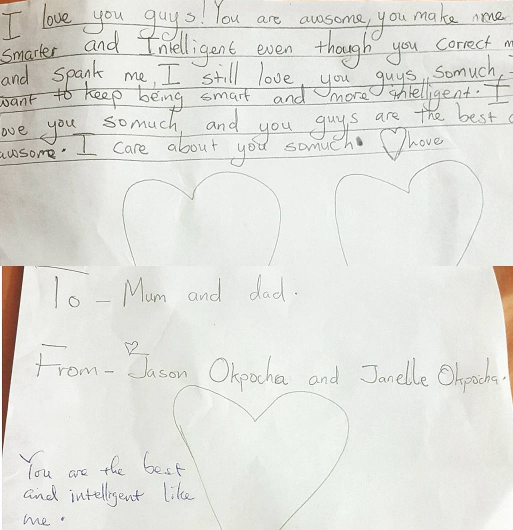 I love you guys! You are awsome, you make me
smarter and Intelligent even though you correct m
and spank me, I still love you guys somuch,
want to keep being smart and more intelligent. I
ove you somuch, and you guys are the best
awsome. I care about you somuch. love
To - Mum and dad.
From - Jason Okpocha and Janelle Okpocha.
You are the best
and intelligent like
me.